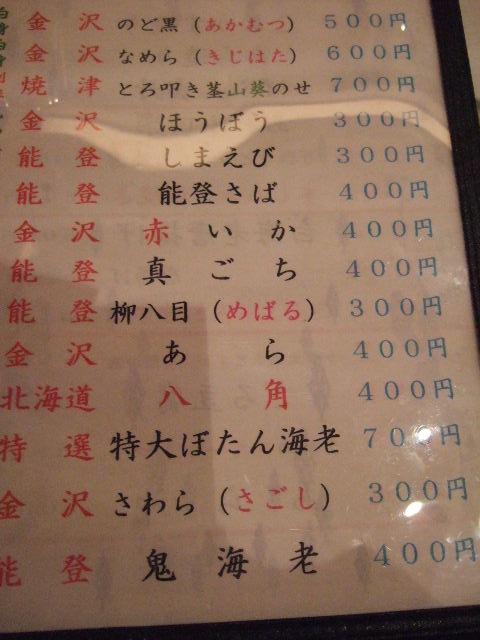 金沢 のど黒（あかむつ） ５００円
金沢 なめら（きじはた） ６００円
焼津 とろ叩き茎山葵のせ ７００円
金沢 ほうぼう ３００円
能登 しまえび ３００円
能登 能登さば ４００円
金沢 赤いか ４００円
能登 真ごち ４００円
能登 柳八目（めばる） ３００円
金沢 あら ４００円
北海道 八角 ４００円
特選 特大ぼたん海老 ７００円
金沢 さわら（さごし） ３００円
能登 鬼海老 ４００円